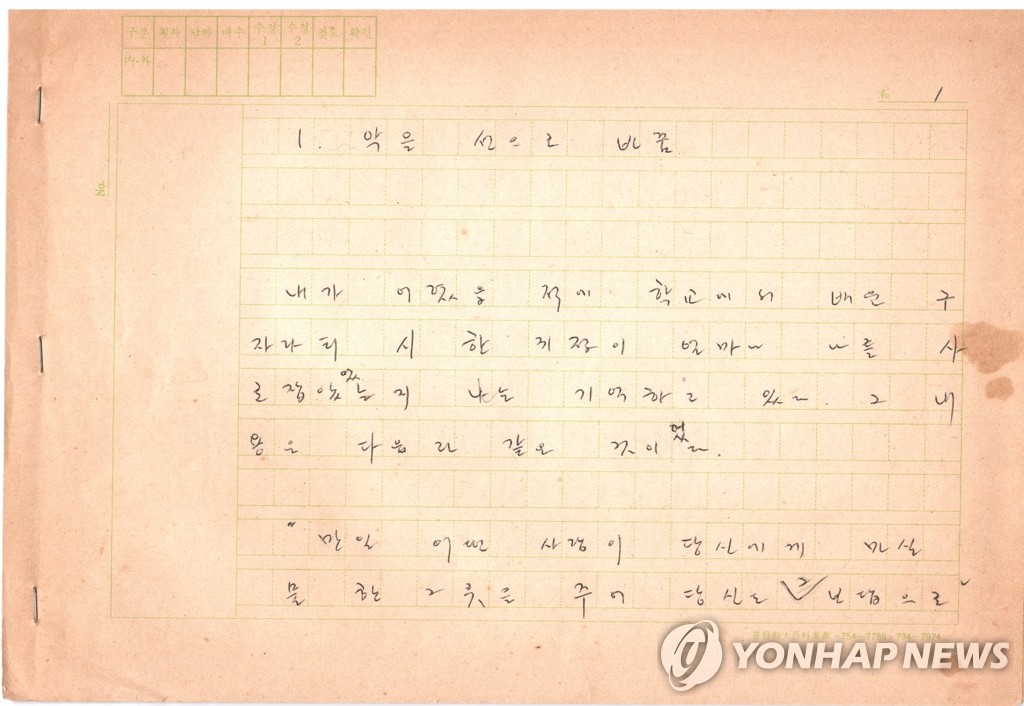 구분 필자 날짜 매수 수정 1 수정 2 확인
内·外
No. 1
No.
1. 악을 선으로 바꿈
내가 어렸을 적에 학교에서 배운 구
자라티 시 한 귀절이 얼마나 나를 사
로잡았었는지 나는 기억하고 있다. 그 내
용은 다음과 같은 것이었다.
"만일 어떤 사람이 당신에게 마실
물 한 그릇을 주어 당신도 그 보답으로"
YONHAP NEWS